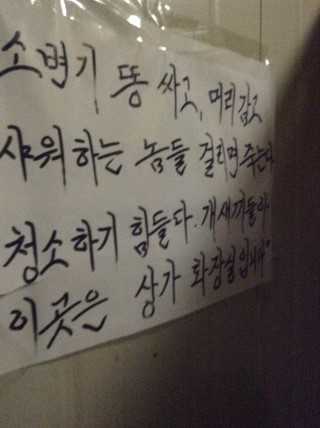 소변기 똥 싸고, 머리감고
샤워 하는 놈들 걸리면 죽는다
청소하기 힘들다. 개새끼들아
이곳은 상가 화장실입니다"